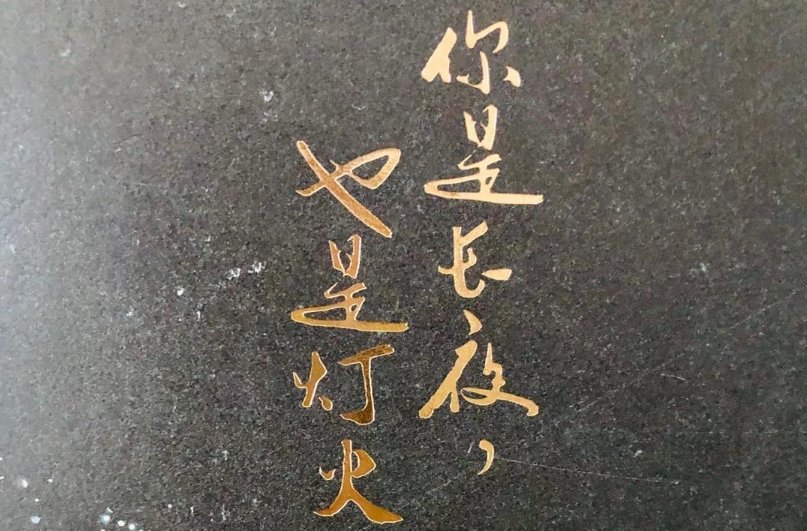 你是长夜，
也是灯火